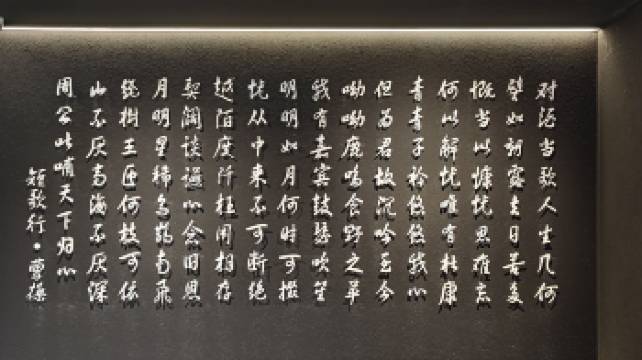 对酒当歌人生几何
譬如朝露去日苦多
慨当以慷忧思难忘
何以解忧唯有杜康
青青子衿悠悠我心
但为君故沉吟至今
呦呦鹿鸣食野之苹
我有嘉宾鼓瑟吹笙
明明如月何时可掇
忧从中来不可断绝
越陌度阡枉用相存
契阔谈讌心念旧恩
月明星稀乌鹊南飞
绕樹三匝何枝可依
山不厌高海不厌深
周公吐哺天下归心
短歌行·曹操